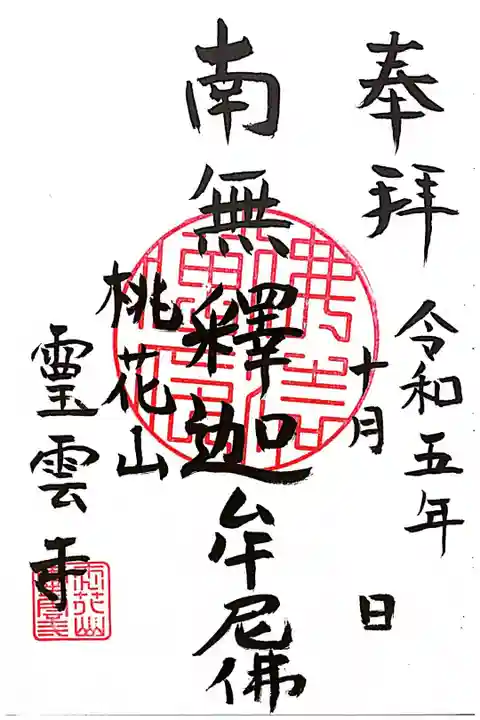 奉拜
令和五年
十月 日
南無釋迦牟尼佛
桃花山
霊雲寺